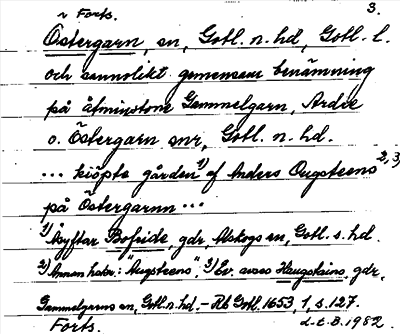 ~ Forts. 3.
Östergarn, sn, Gotl. n. hd, Gotl. l.
och sannolikt gemensam benämning
på åtminstone Gammelgarn, Ardre
o. Östergarn snr, Gotl. n. hd.
... kiöpte gården 1) af Anders Ougsteens 2, 3)
på Östergarnn ...
1) Åsyftar Bofride, gdr, Alskogs sn, Gotl. s. hd.
2) Annan habr.: "Augsteens". 3) Ev. avses Haugstains, gdr,
Gammelgarns sn, Gotl. n. hd. - Rb Gotl. 1653, 1, s. 127.
Forts. d. t. B. 1982.